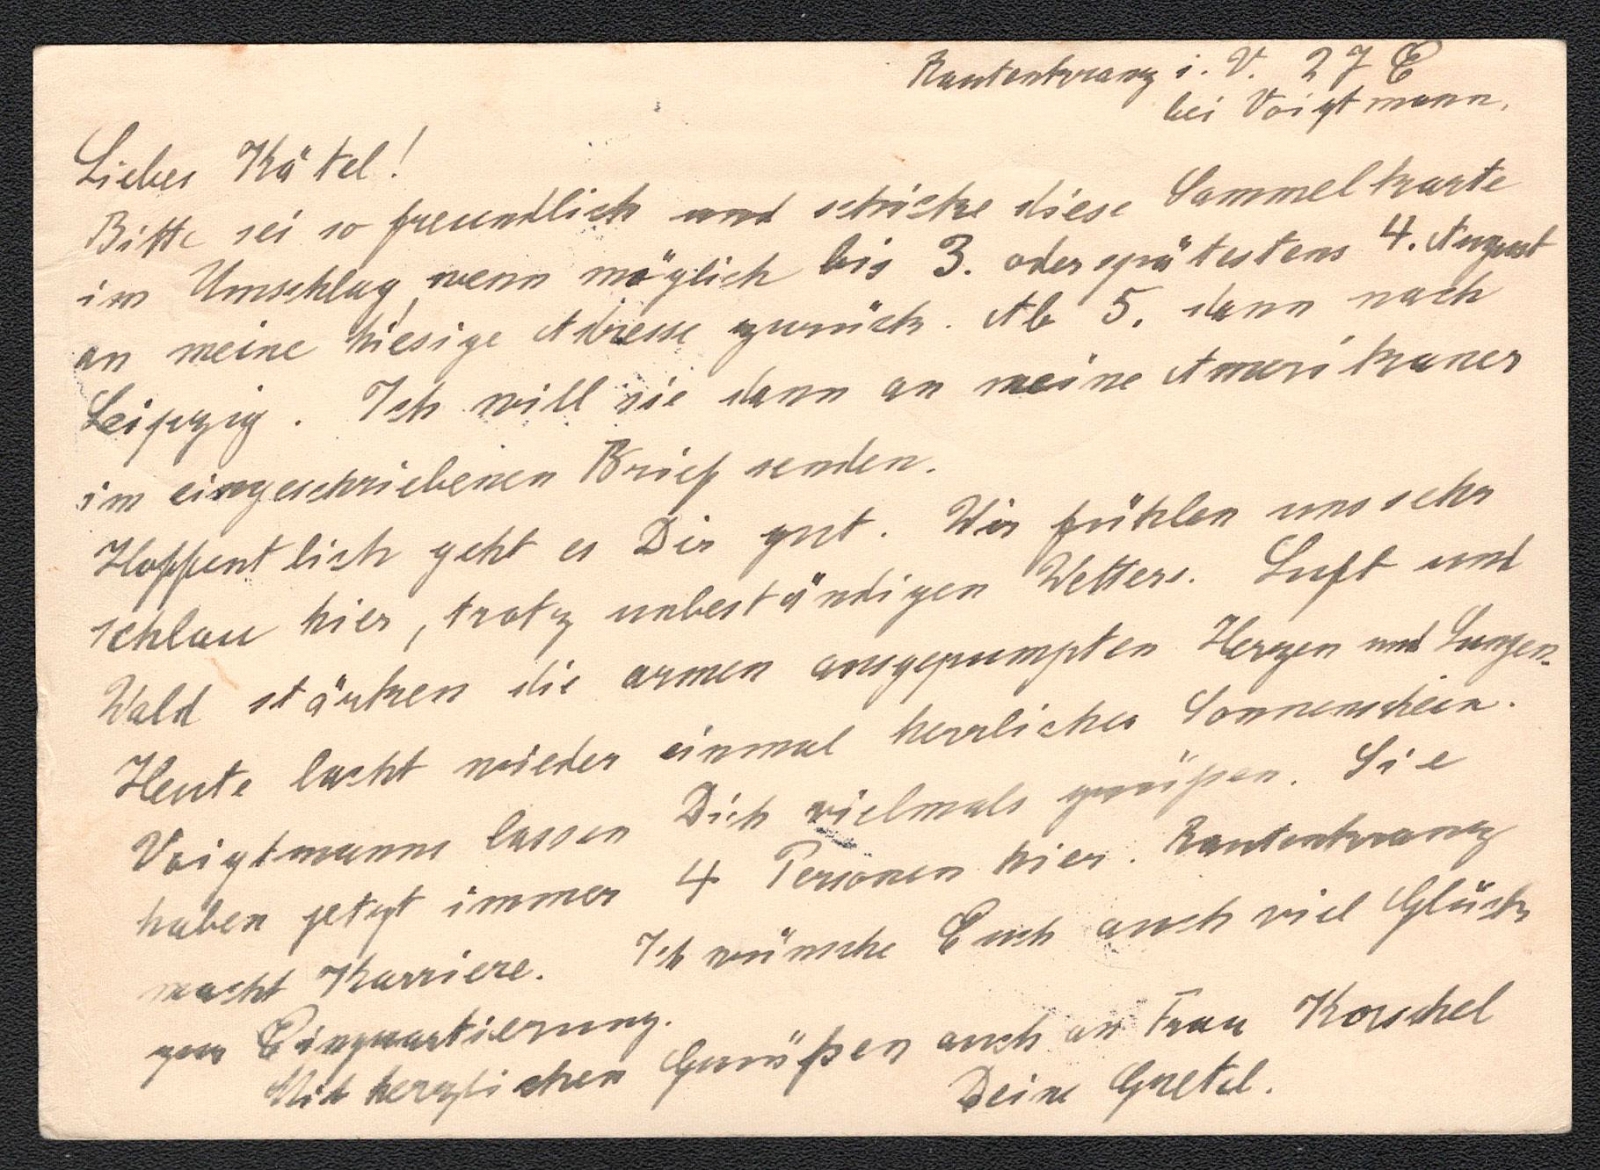 Rautenkranz i. V. 27 E
bei Voigtmann.
Liebes Kätel!
Bitte sei so freundlich und schicke diese Sammelkarte
im Umschlag, wenn möglich bis 3. oder spätestens 4. August
an meine hiesige Adresse zurück. Ab 5. dann nach
Leipzig. Ich will sie dann an meine Amerikaner
im eingeschriebenen Brief senden.
Hoffentlich geht es Dir gut. Wir fühlen uns sehr
schlau hier, trotz unbeständigen Wetters. Luft und
Wald stärken die armen ausgepumpten Herzen und Lungen.
Heute lacht wieder einmal herrlicher Sonnenschein.
Voigtmanns lassen Dich vielmals grüßen. Sie
haben jetzt immer 4 Personen hier. Rautenkranz
macht Karriere. Ich wünsche Euch auch viel Glück
zur Einquartierung.
Mit herzlichen Grüßen auch an Frau Korschel
Deine Gretel.